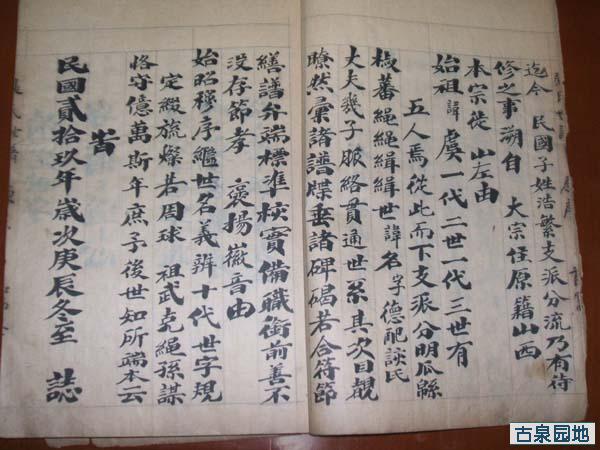 迄今 民國子姓浩繁支派分流乃有待
修之事溯自 大宗住原籍山西
本宗徙 山左由
始祖諱虞一代二世一代三世有
五人焉從此而下支派分明瓜緜
椒蕃繩繩緝緝世諱名字德配談氏
丈夫幾子脈絡貫通世系其次目覩
瞭然彙諸譜牒垂諸碑碣若合符節
繕譜弁端標準核實備職銜前善不
没存節孝 褒揚徽音由
始昭穆序繼世名義辨十代世字規
定綴旒燦若周球祖武克繩孫謀
恪守億萬斯年庶子後世知所端本云
旹
民國貳拾玖年歲次庚辰冬至 誌
古泉园地